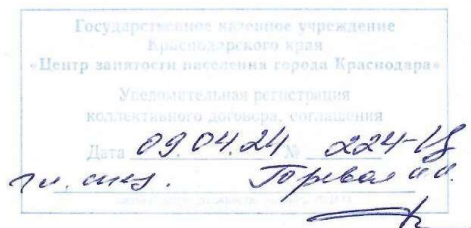 Государственное казенное учреждение
Краснодарского края
«Центр занятости населения города Краснодара»
Уведомительная регистрация
коллективного договора, соглашения
Дата 09.04.24 № 224-
гл. спец.